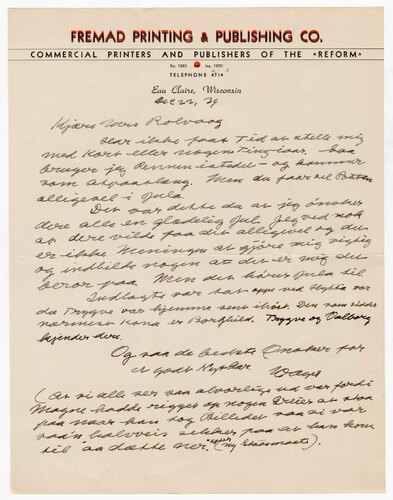 FREMAD PRINTING & PUBLISHING CO.
COMMERCIAL PRINTERS AND PUBLISHERS OF THE «REFORM»
Est. 1885 Inc. 1890
TELEPHONE 4714
Eau Claire, Wisconsin
Dec 22, 39
Kjære Mrs Rolvaag
Har ikke faat Tid at stelle mig
med Kort eller nogen Ting iaar, saa
bruger jeg Pennen istedet - og kommer
som
alligevel i Jula.
Det var dette da at jeg ønsker
dere alle en glædelig Jul. Jeg ved nok
at dere vilde faa det alligevel og det
er ikke Meningen at gjøre mig vigtig
og indbilde nogen at det er mig det
beror paa. Men det hører Jula til
Indlagte var tat oppe ved Hytta vor
da Trygve var hjemme sent ihøst. Den som sidder
nærmest Kona er Borghild. Trygve og Valborg
kjender dere.
Og saa de bedste Ønsker for
et godt Nyttaar.
Wages
(At vi alle ser saa alvorlige ud var fordi
Magne hadde rigget op nogen Greier at staa
paa naar han tog Billedet saa vi var
halvveis sikker paa at han kom
til "aa dætte ner" efter Ny Staamaate).